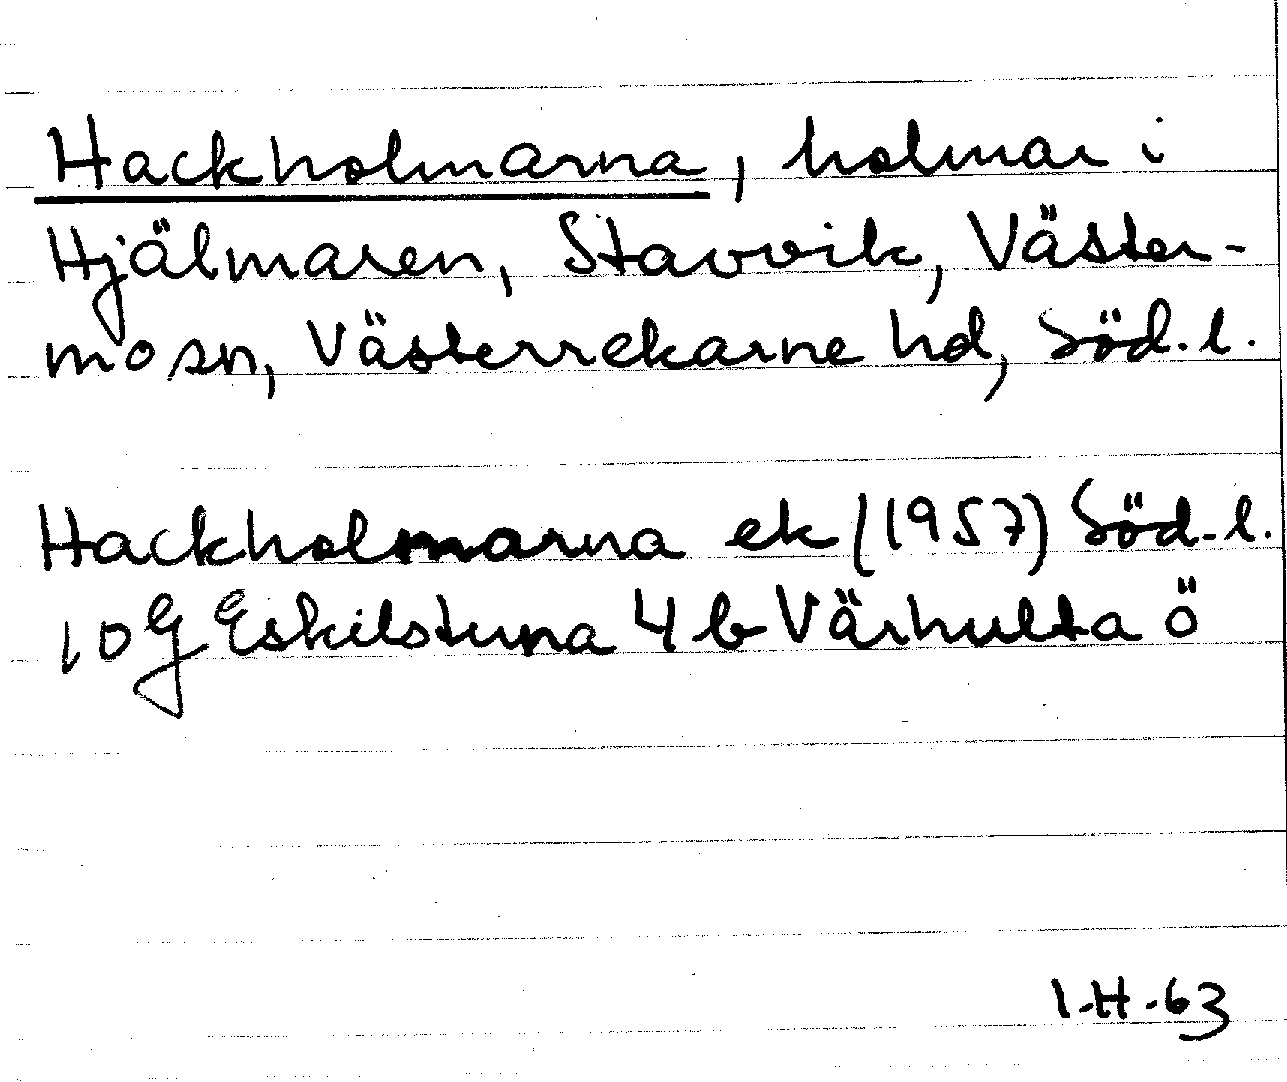 Hackholmarna, holmar i
Hjälmaren, Stavvik, Väster-
mo sn, Västerrekarne hd, Söd. l.
Hackholmarna ek (1957) Söd. l.
10 G Eskilstuna 4 b Värhulta ö
I.H.-63